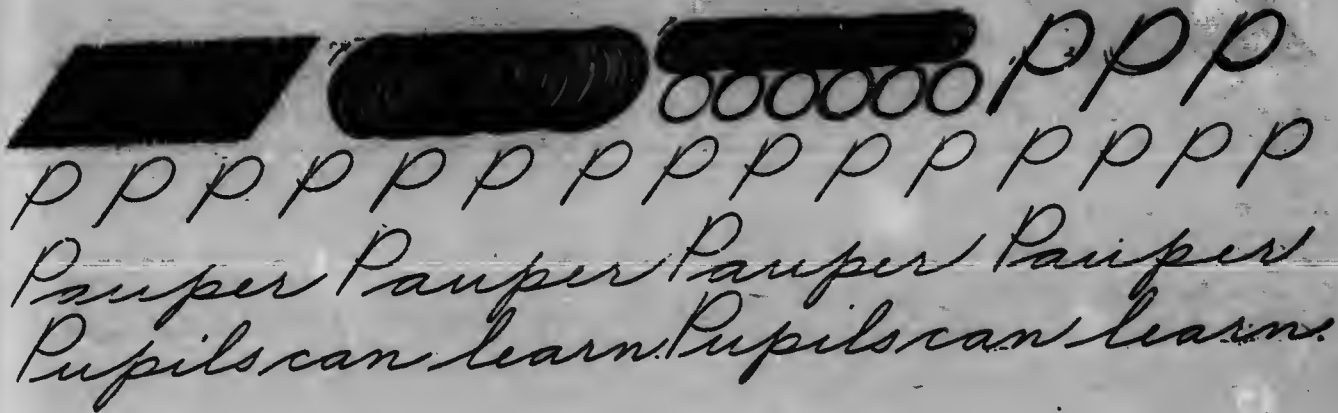 P P P
P P P P P P P P P P P P P P P
Pauper Pauper Pauper Pauper
Pupils can learn. Pupils can learn.